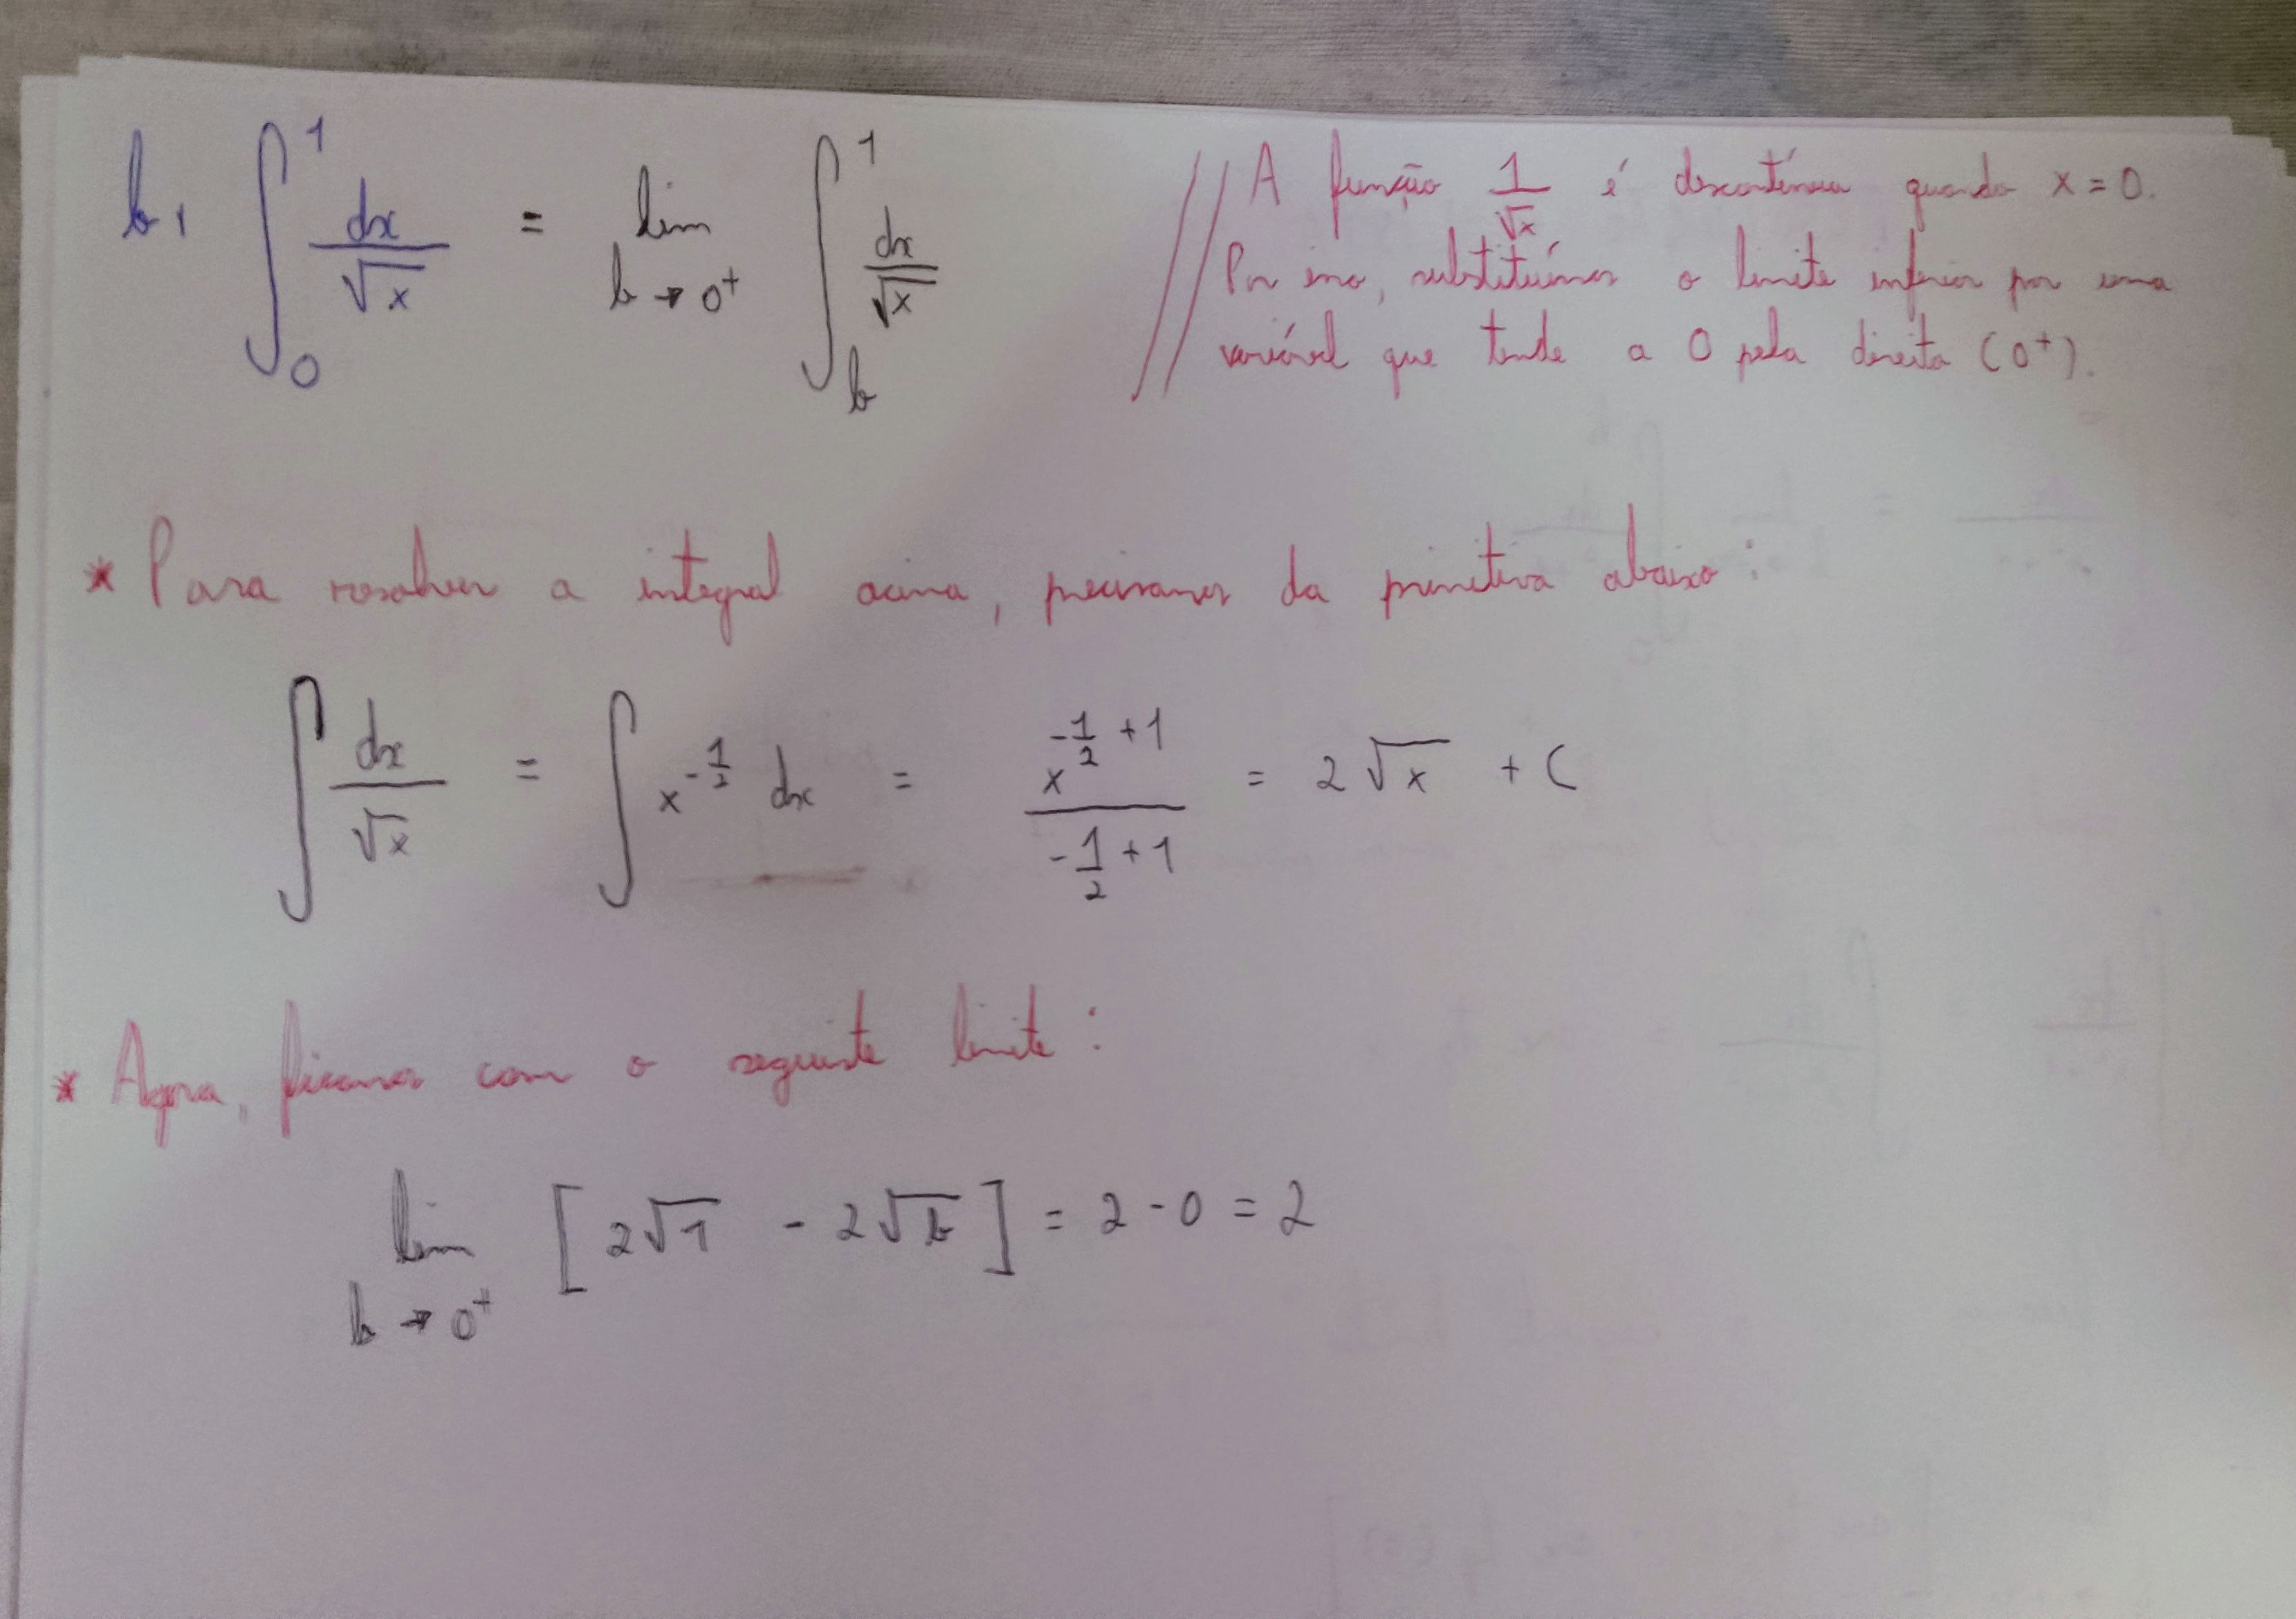 b, ∫₀¹ dx/√x = lim b→0⁺ ∫_b¹ dx/√x // A função 1/√x é descontínua quando x = 0.
Por isso, substituímos o limite inferior por uma
variável que tende a 0 pela direita (0⁺).
* Para resolver a integral acima, precisamos da primitiva abaixo:
∫ dx/√x = ∫ x^(-1/2) dx = x^(-1/2 + 1)/(-1/2 + 1) = 2√x + C
* Agora, ficamos com o seguinte limite:
lim b→0⁺ [2√1 - 2√b] = 2 - 0 = 2